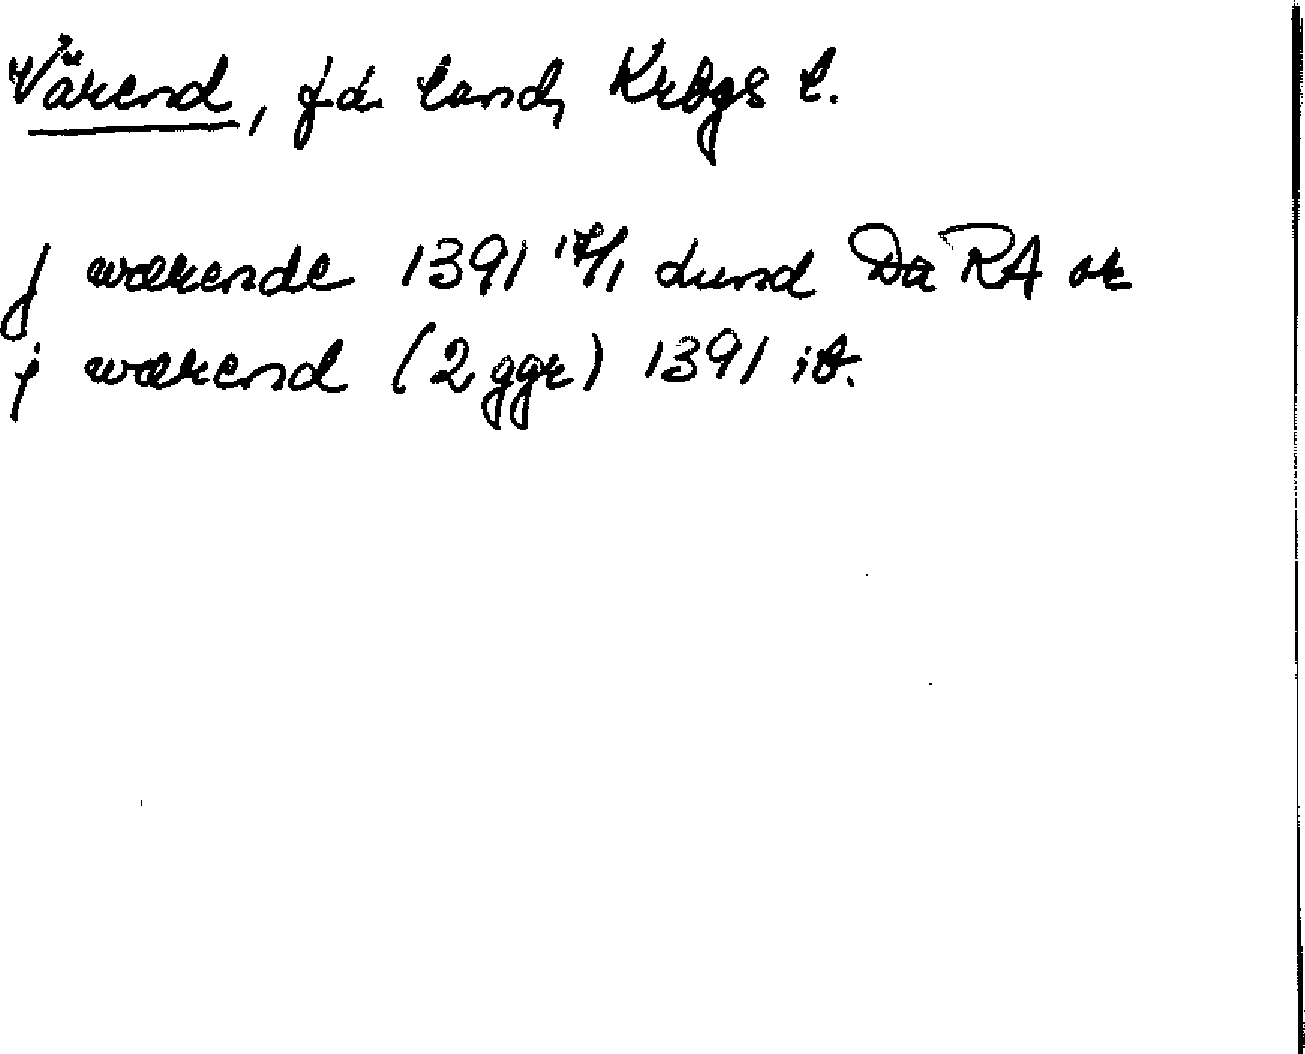 Värend, f.d. land, Krbgs l.
J wærende 1391 17/1 Lund Da RA or
j wærend (2 ggr) 1391 ib.